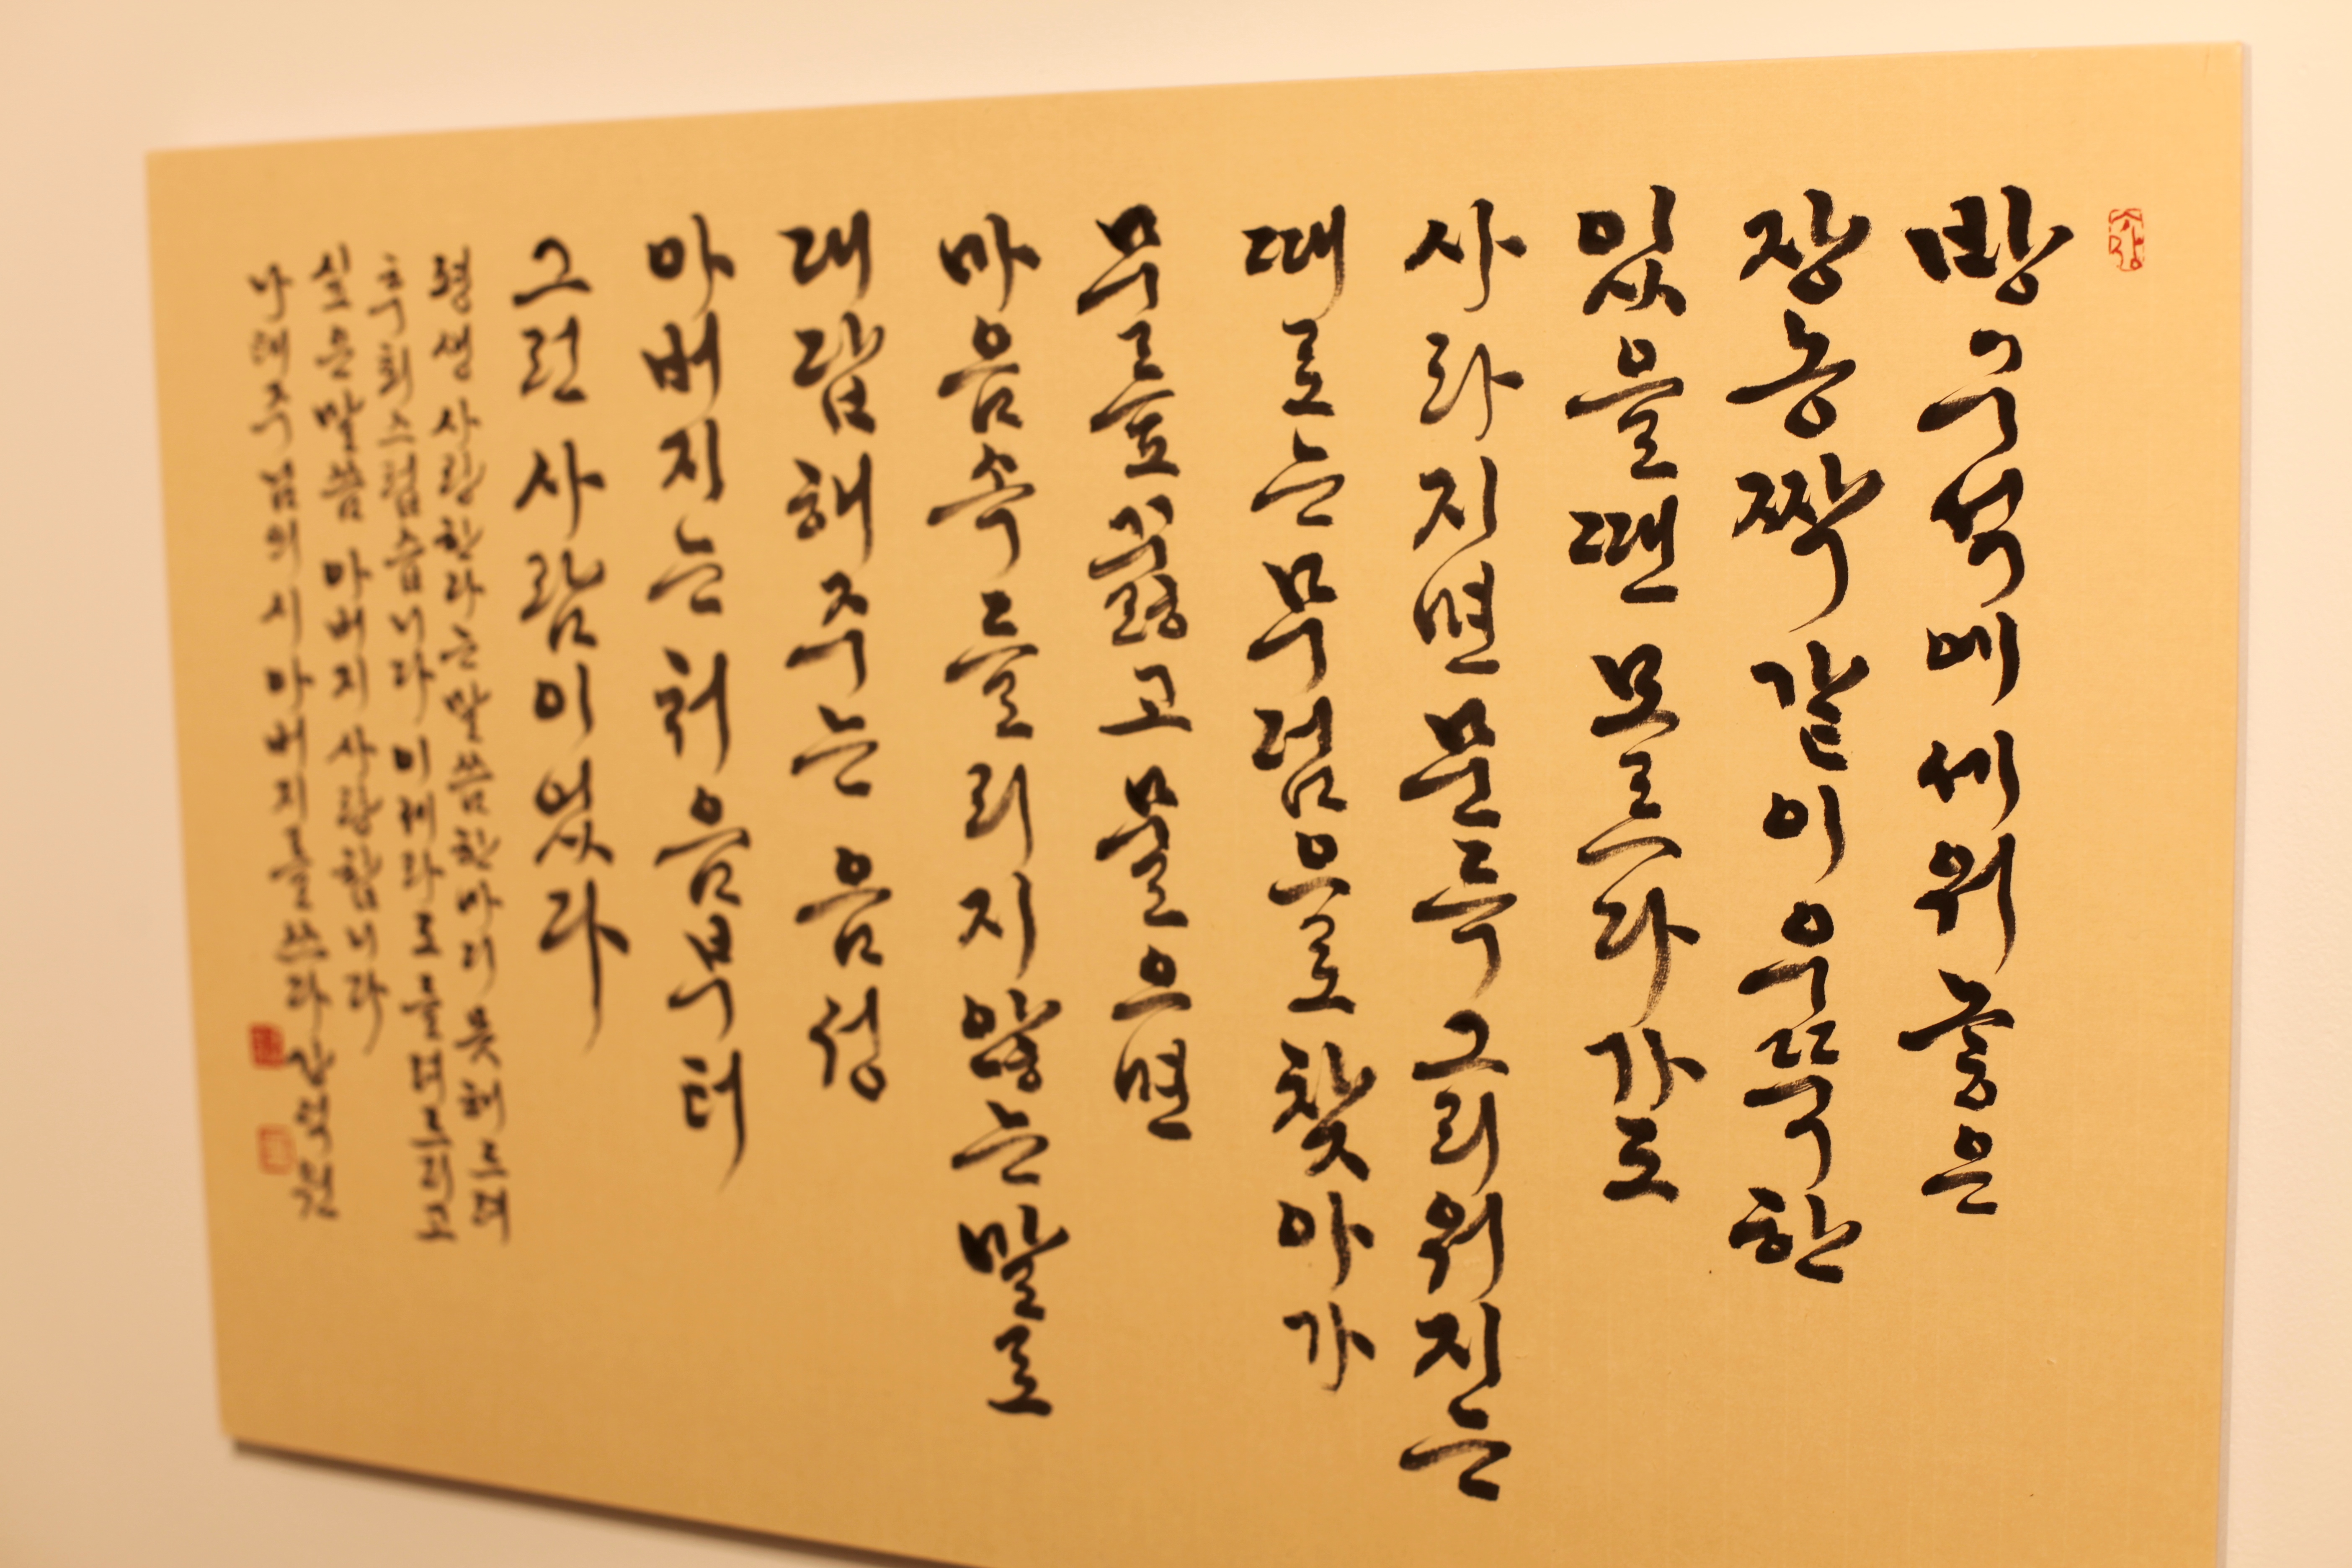 방구석에 세워 놓은
장농짝 같이 우뚝한
있을 땐 모르다가도
사라지면 문득 그리워지는
때로는 무덤으로 찾아가
무릎 꿇고 물으면
마음속 들리지 않는 말로
대답해 주는 음성
아버지는 처음부터
그런 사람이었다
평생 사랑한다는 말씀 한마디 못해드려
후회스럽습니다 이제라도 올려드리고
싶은 말씀 아버지 사랑합니다
나태주님의 시 아버지를 쓰다